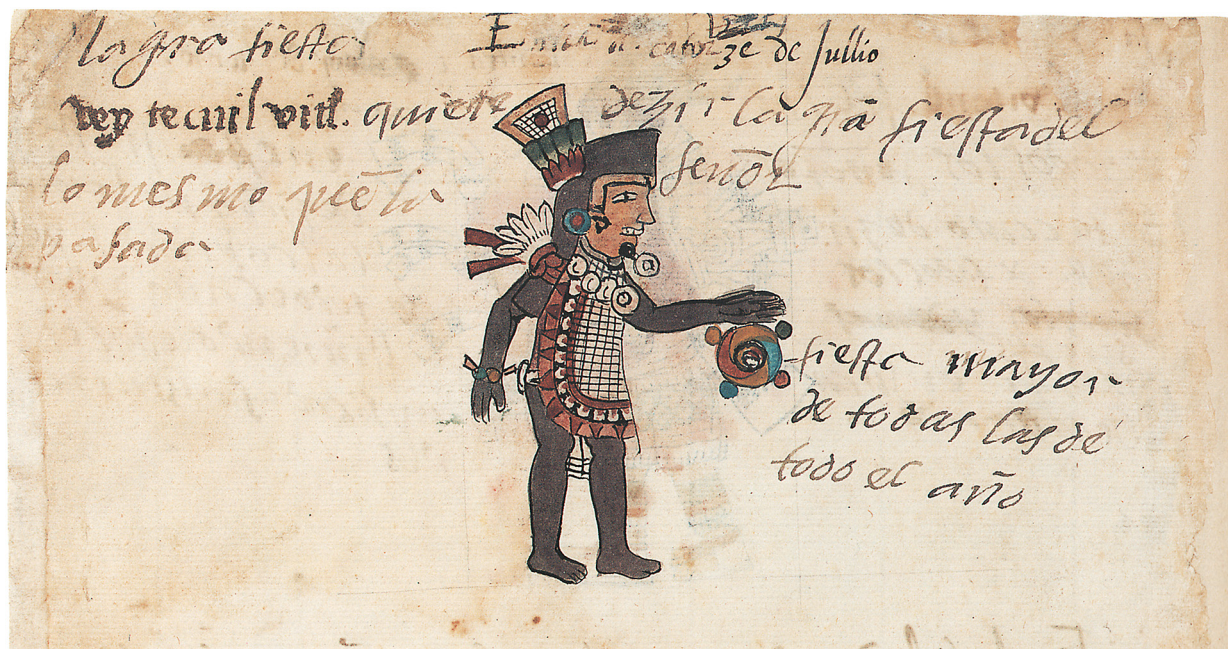 la gra fiesta
En  a. catorze de Jullio
vey tecuil vitl. quiere dezir la grā fiesta del
señor
lo mesmo  la
pasada
fiesta mayor
de todas las de
todo el año